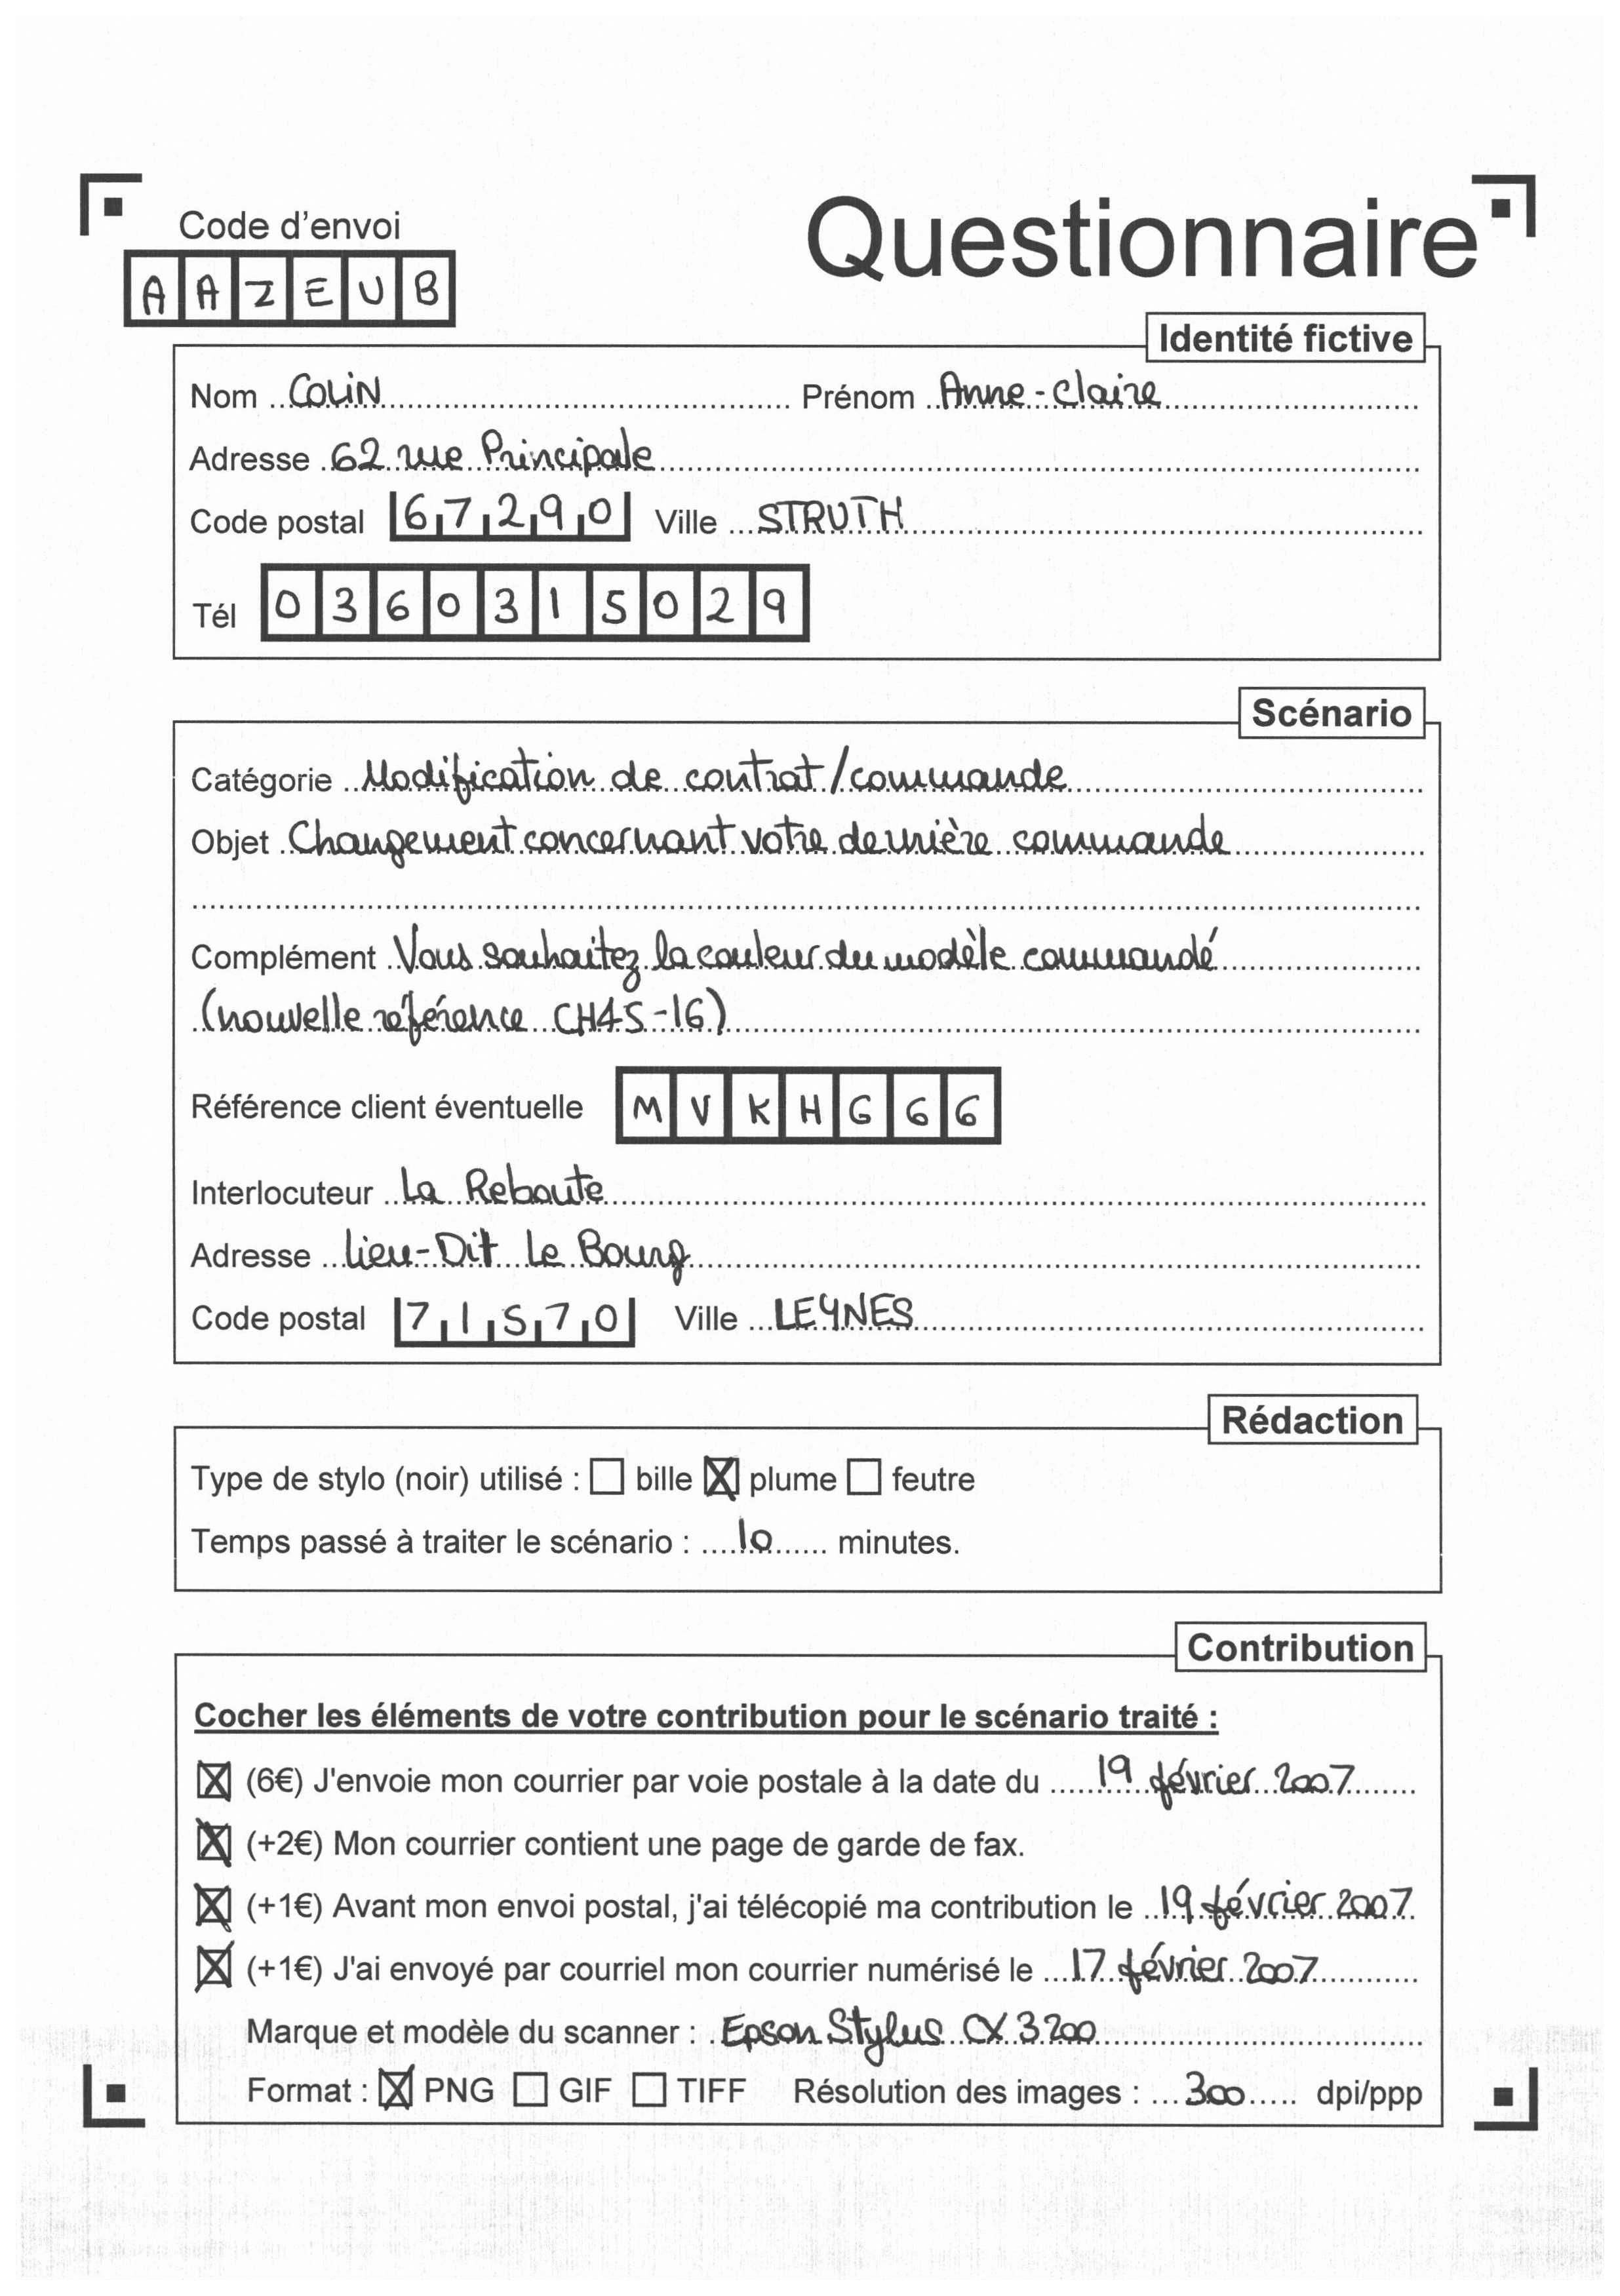 Code d'envoi
Questionnaire
A A Z E U B
Identité fictive
Nom Colin Prénom Anne-Claire
Adresse 62 rue Principale
Code postal 67290 Ville STRUTH
Tél 0360315029
Scénario
Catégorie Modification de contrat/commande
Objet Changement concernant votre dernière commande
Complément Vous souhaitez la couleur du modèle commandé
(nouvelle référence CH45-16)
Référence client éventuelle MVKHG66
Interlocuteur La Reboute
Adresse Lieu-Dit Le Bourg
Code postal 71570 Ville LEYNES
Rédaction
Type de stylo (noir) utilisé : ☐ bille ☒ plume ☐ feutre
Temps passé à traiter le scénario : 10 minutes.
Contribution
Cocher les éléments de votre contribution pour le scénario traité :
☒ (6€) J'envoie mon courrier par voie postale à la date du 19 février 2007
☒ (+2€) Mon courrier contient une page de garde de fax.
☒ (+1€) Avant mon envoi postal, j'ai télécopié ma contribution le 19 février 2007
☒ (+1€) J'ai envoyé par courriel mon courrier numérisé le 17 février 2007
Marque et modèle du scanner : Epson Stylus CX3200
Format : ☒ PNG ☐ GIF ☐ TIFF Résolution des images : 300 dpi/ppp